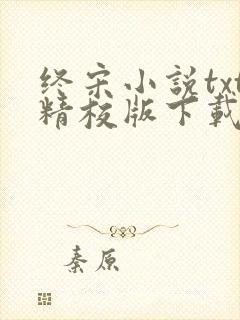 终宋小説txt
精校版下載
秦原